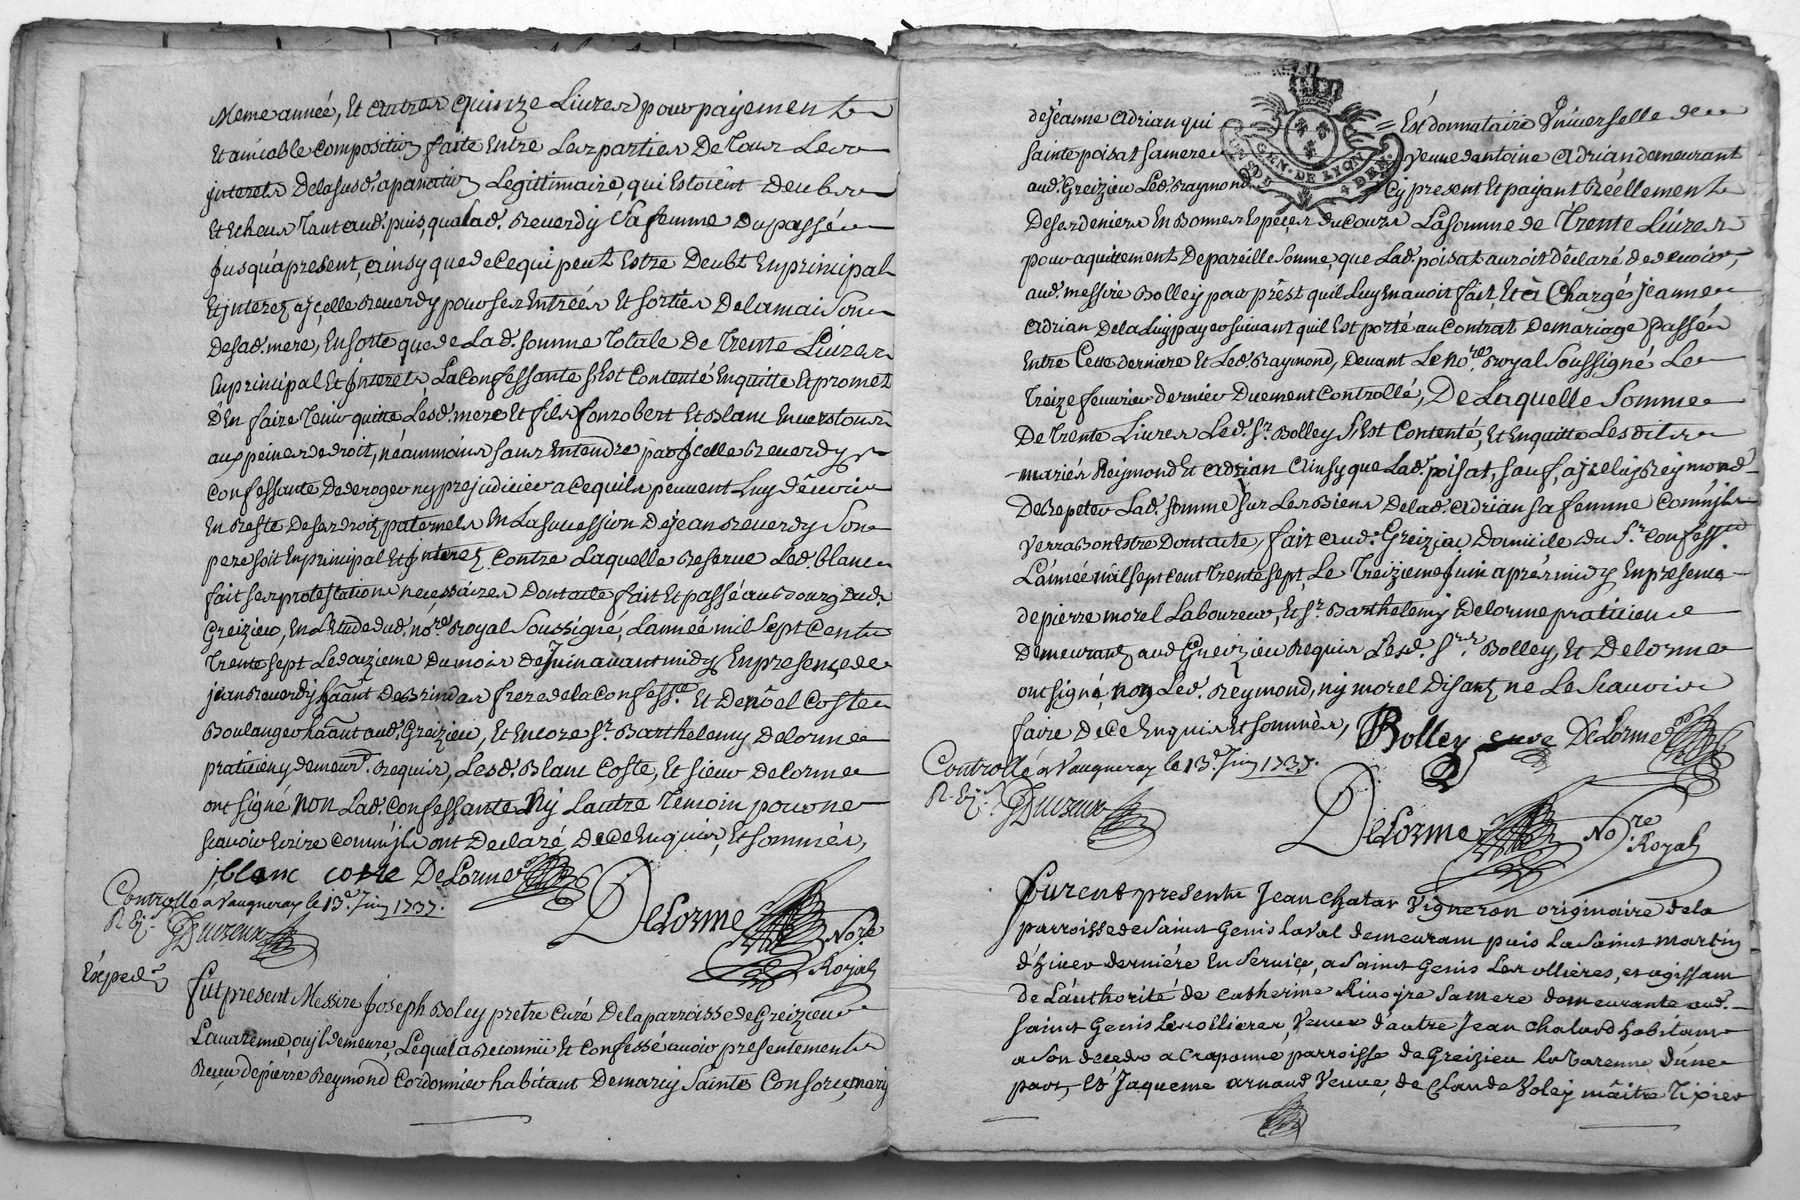 Meme année, Et autres quinze Livres pour payement
Et amiable composition faite Entre Les parties De Tous Les
jnterets De la susd. apanation Legitimaire, qui Estoient Deubs
Et Echeus Tant aud. puis, qua lad. Reverdy sa femme Du passé
Jusqu'apresent, ainsy que de ce qui peut Estre Deubt En principal
Et jnterez a jcelle Reverdy pour ses Entrées Et sorties De la maison
De sad. mere, En sorte que de La d. somme Totale De Trente Livres
En principal Et Jnterets La Confessante s'Est Contenté En quitte Et promet
D'En faire Tenir quitte Lesd. mere Et fils fonrobert Et Blanc Envers tous
aux peines de droit, néammoins sans Entendre par Jcelle Reverdy
Confessante De deroger ny prejudicier a ce quils peuvent Luy dêvoir
En Reste De ses droits paternels En La succession De jean Reverdy son
pere soit En principal Et Jnterez, contre Laquelle Reserve Led. blanc
fait ses protestations necessaires Dont acte fait Et passé au Bourg dud.
Greizieu, En L'Etude dud. no.re Royal Soussigné, L'année mil sept Cents
Trente sept Le douzieme du mois de Juin avant midy En presence de
jean Reverdy h.ant De Brindas frere de la Confess.te Et De nôel Coste
Boulanger h.ant aud. Greizieu, Et Encore s.r Barthelemy Delorme
praticien y demeur.t Requis, Lesd. Blanc Coste, Et sieur Delorme
ont signé non Lad. Confessante Ny L'autre Témoin pour ne
sçavoir Ecrire comm'jls ont Declaré De ce Enquis, Et sommés,
jblanc coste DeLorme
Controllé a Vaugneray le 13.e Juin 1737.
DeLorme No.re Royal
Expéd.
fut present Messire Joseph Boley pretre Curé De la parroisse de Greizieu
Lavarenne, ou jl demeure, Lequel a Reconnü Et Confessé avoir presentement
Reçu de pierre Reymond Cordonnier habitant De marcy Sainte Consorce, mary
de jeanne Adrian qui Est donnataire Universelle de
sainte poisat sa mere veuve d'antoine Adrian demeurant
aud. Greizieu Led. Raymond cy present Et payant Réellement
De ses deniers En Bonnes Especes du cours La somme de Trente Livres
GEN. DE LYON
pour aquittement De pareille somme, que Lad. poisat auroit déclaré de devoir,
aud. messire Bolley par prêst quil Luy En avoit fait, Et à Chargé jeanne
Adrian De la Luy payer suivant quil Est porté au Contrat De mariage Passé
Entre Cette derniere Et Led. Raymond, Devant Le no.re Royal Soussigné Le
Treize fevrier dernier Duement Controllé, De Laquelle somme
De Trente Livres Led. S.r Bolley s'Est Contenté, Et En quitte Lesdits
mariés Reymond Et Adrian Ainsy que Lad. poisat, sauf, a jceluy Reymond
De Repeter Lad. somme sur Les Biens De lad. Adrian sa femme Comm'jl
verra Bon Estre Dont acte, fait aud. Greizieu Domicile du s.r Confess.t
L'année mil sept cent Trente sept, Le Treizieme Juin aprés midy, En presence
de pierre morel Laboureur, Et S.r Barthelemy Delorme praticien
Demeurants aud. Greizieu Requis Lesd. S.rs Bolley, Et Delorme
ont signé, non Led. Reymond, ny morel Disants ne Le sçavoir
faire De Ce Enquis Et sommés, Bolley curé DeLorme
Controllé a Vaugneray le 13.e Juin 1737.
DeLorme No.re Royal
Furent presents Jean Chatar Vigneron originaire de la
parroisse de Saint Genis Laval demeurant puis La Saint Martin
d'hiver derniére En Service, a Saint Genis Les ollières, et agissant
de L'authorité de Catherine Rivoyre Sa mere demeurante aud.
Saint Genis Les ollieres, Veuve d'autre Jean Chatard habitant
a Son decedo a Craponne parroisse de Greizieu la Varenne, d'une
part, Et Jaqueme Arnaud Veuve, de Claude Voley mâitre Tixier